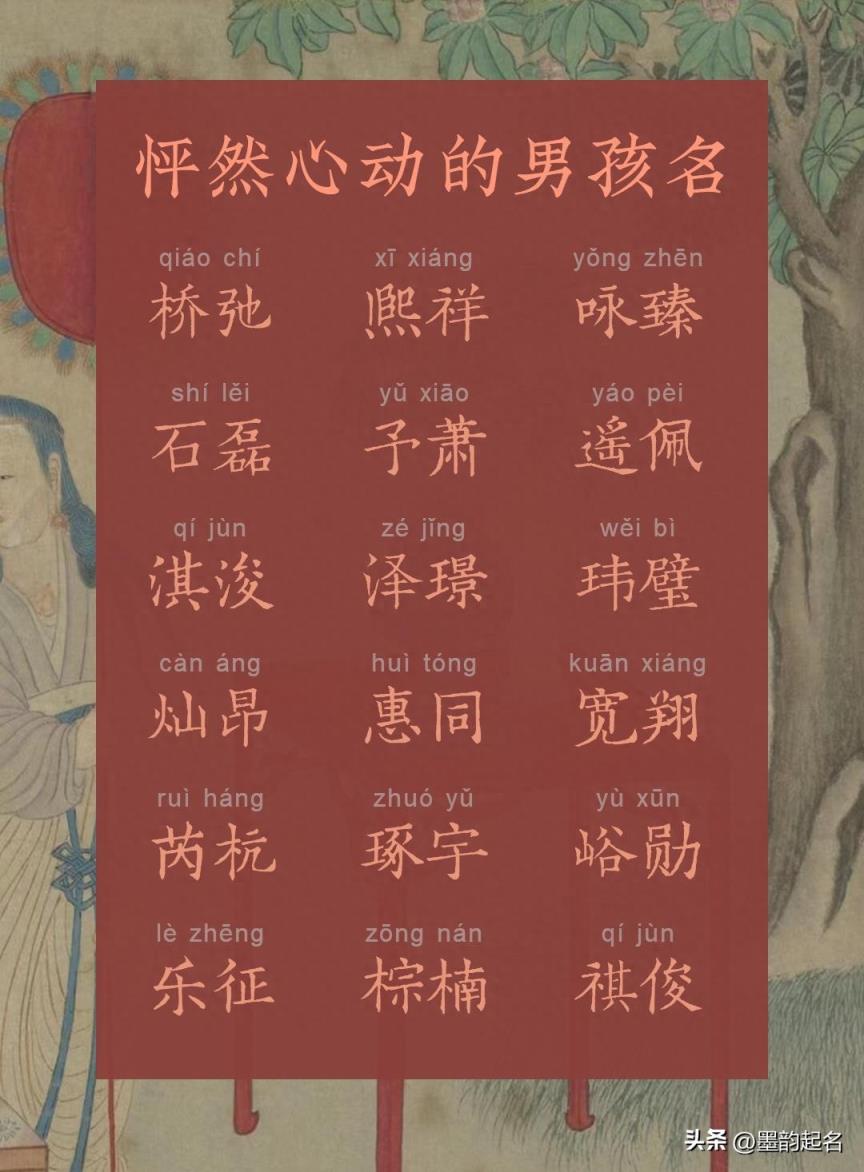 怦然心动的男孩名
qiáo chí xī xiáng yǒng zhēn
桥弛 熙祥 咏臻
shí lěi yǔ xiāo yáo pèi
石磊 予萧 遥佩
qí jùn zé jǐng wěi bì
淇浚 泽璟 玮璧
càn áng huì tóng kuān xiáng
灿昂 惠同 宽翔
ruì háng zhuó yǔ yù xūn
芮杭 琢宇 峪勋
lè zhēng zōng nán qí jùn
乐征 棕楠 祺俊
头条 @墨韵起名